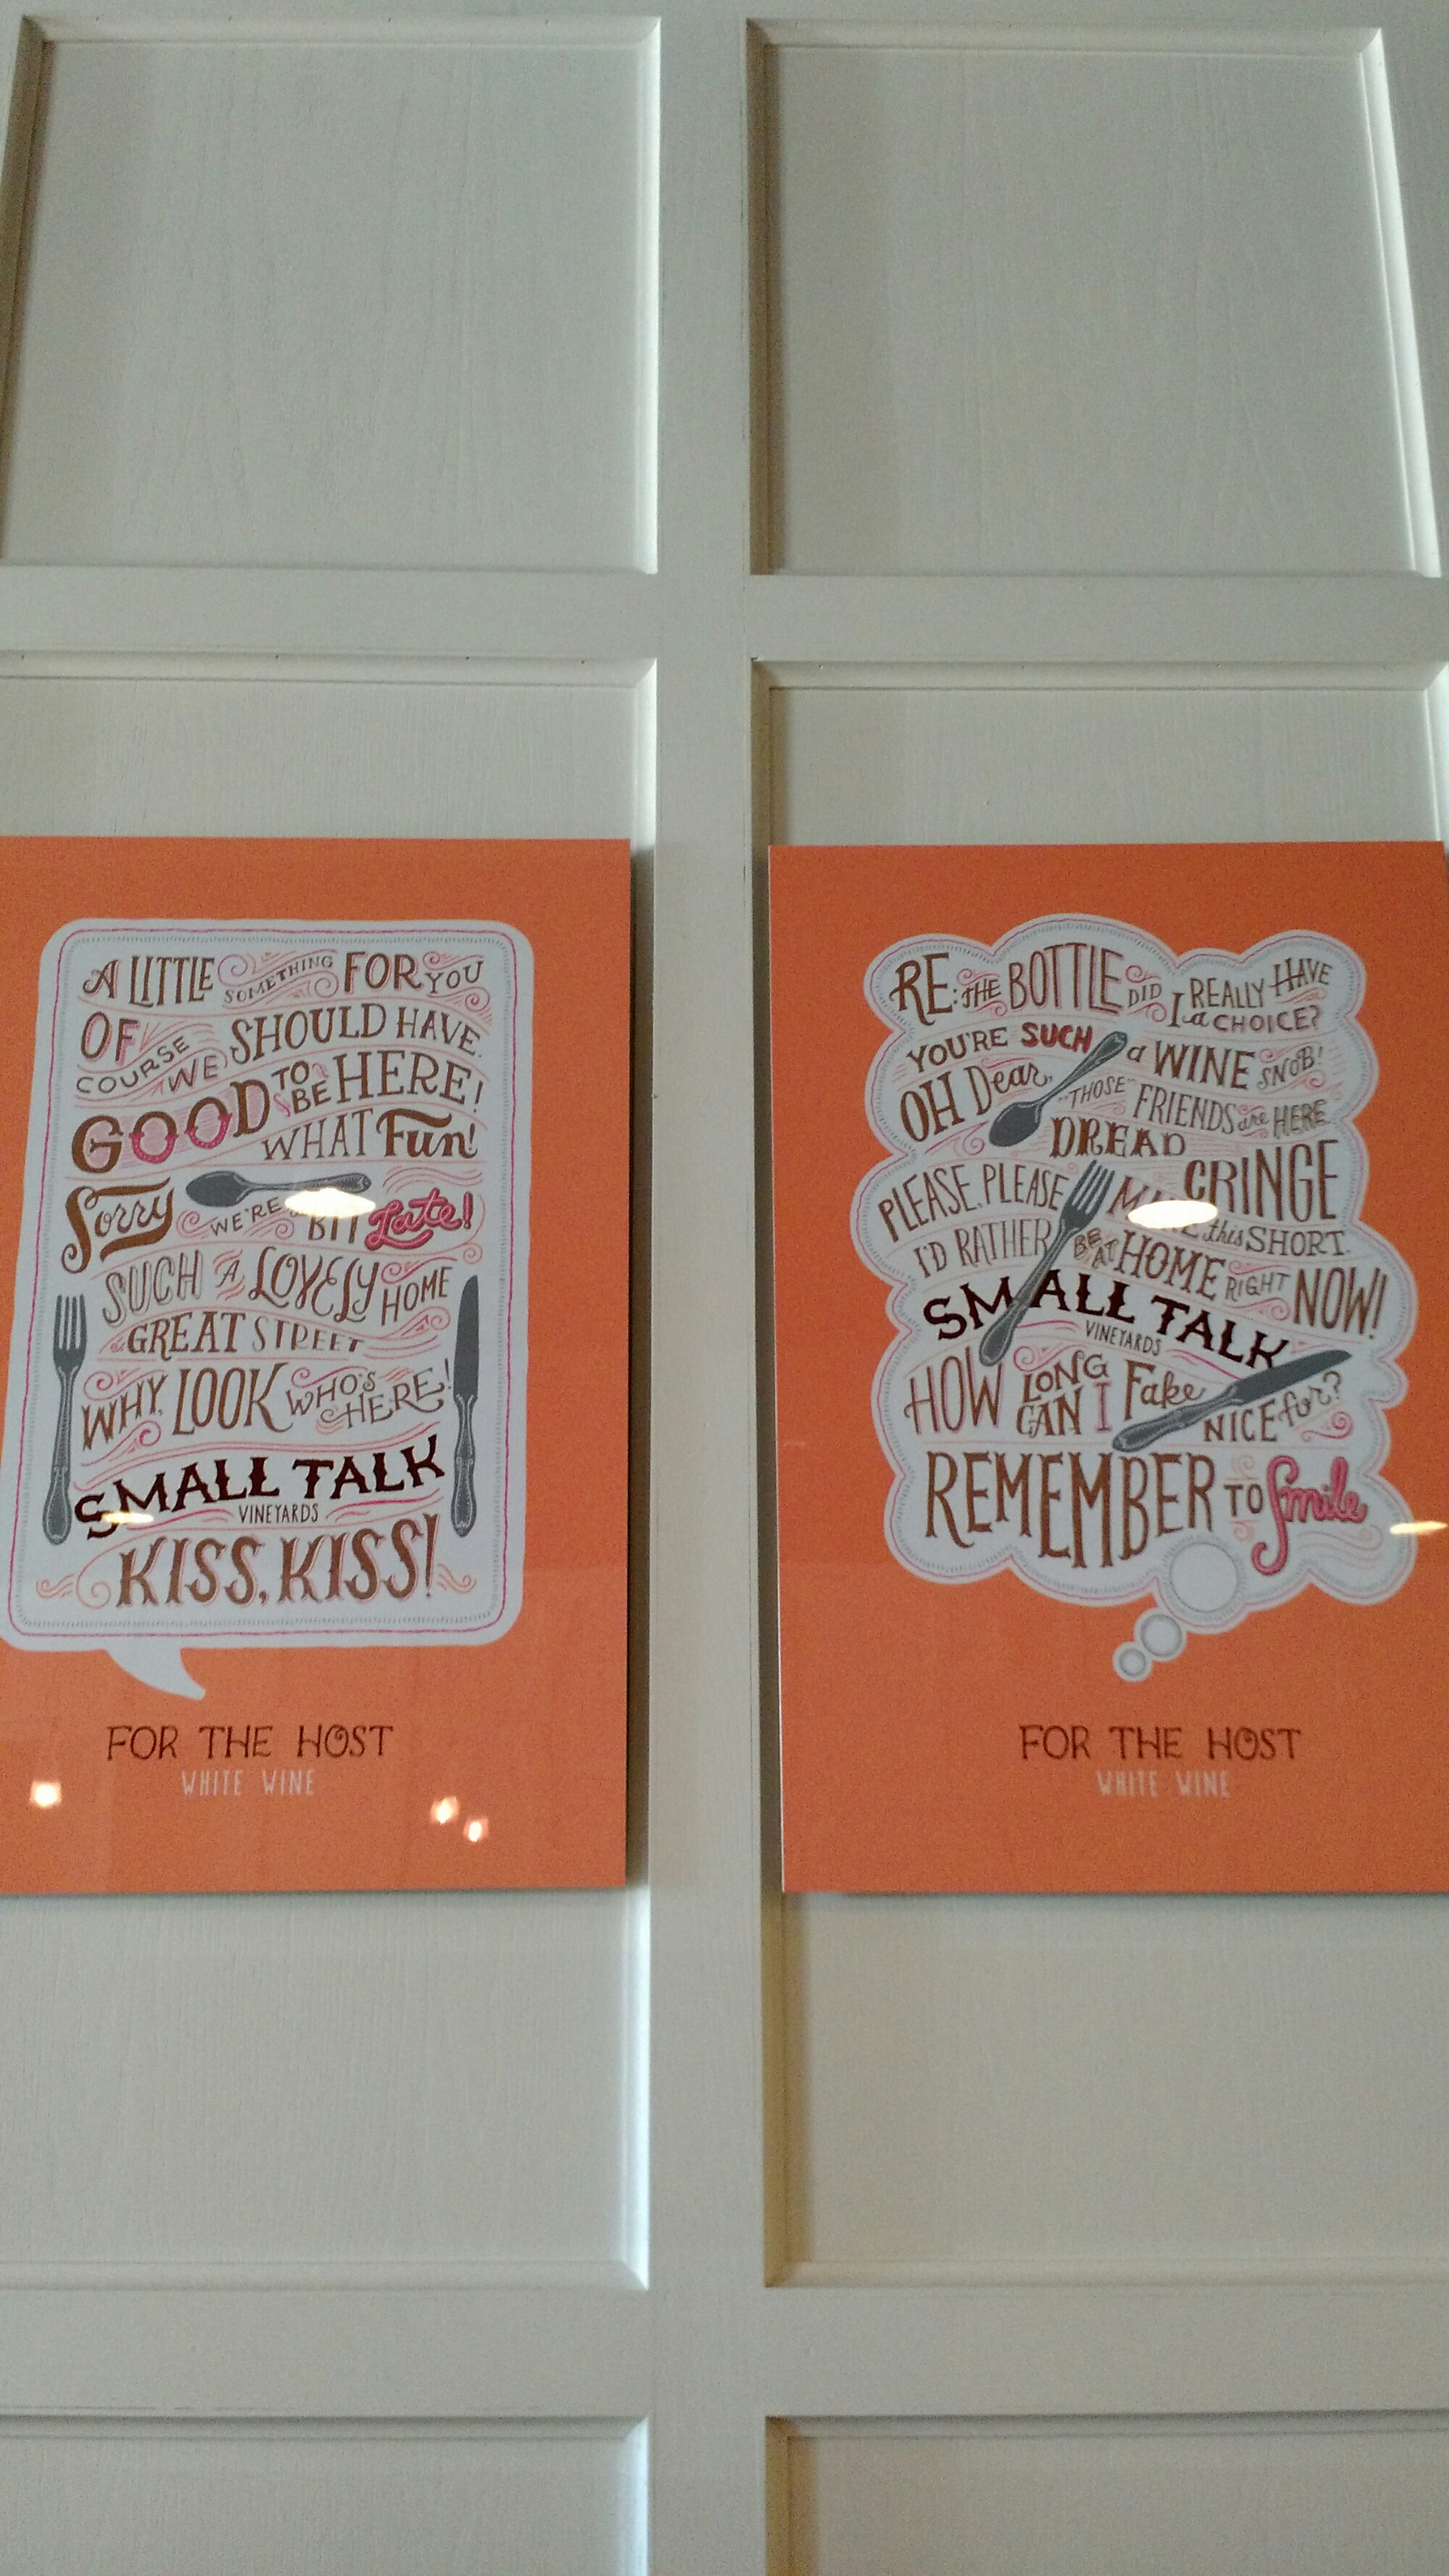 A LITTLE SOMETHING FOR YOU
OF COURSE WE SHOULD HAVE.
GOOD TO BE HERE!
WHAT Fun!
Sorry WE'RE BIT Late!
SUCH A LOVELY HOME
GREAT STREET
WHY, LOOK WHO'S HERE!
SMALL TALK
VINEYARDS
KISS, KISS!
FOR THE HOST
WHITE WINE
RE: THE BOTTLE DID I REALLY HAVE
a CHOICE?
YOU'RE SUCH a WINE SNOB!
OH Dear, "THOSE" FRIENDS are HERE
DREAD
CRINGE
PLEASE, PLEASE this SHORT.
I'D RATHER BE AT HOME RIGHT NOW!
SMALL TALK
VINEYARDS
HOW LONG CAN I Fake NICE for?
REMEMBER TO Smile
FOR THE HOST
WHITE WINE